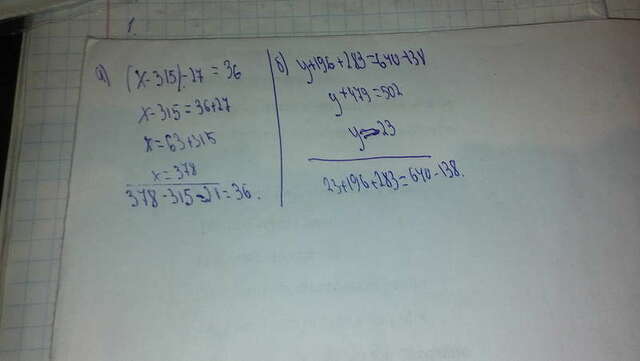 а) (x-315)-27=36
x-315=36+27
x=63+315
x=378
378-315-27=36.
б) y+196+283=640-138
y+479=502
y=23
23+196+283=640-138.